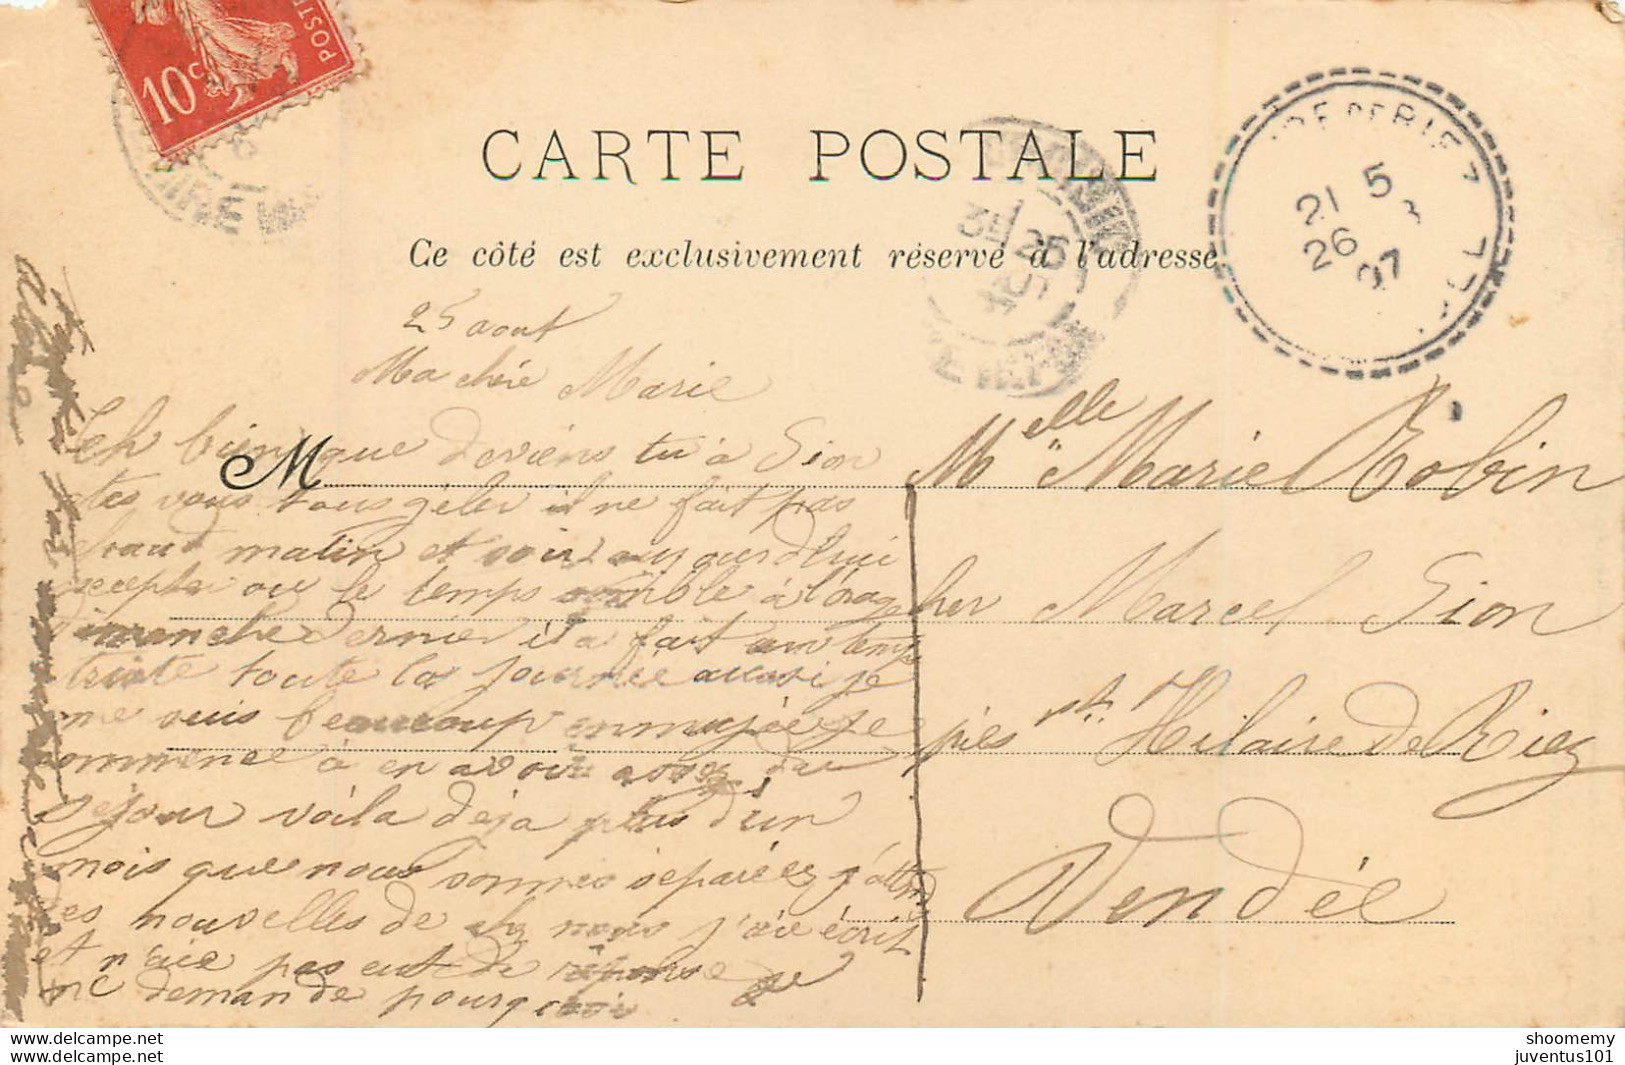 10c
POSTES
CARTE POSTALE
Ce côté est exclusivement réservé à l'adresse
DE RIEZ
21 5
26 8
07
25
25 aout
Ma chère Marie
Eh bien que deviens tu à Sion
etes vous tous geler il ne fait pas
chaud matin et soir aujourd'hui
excepte ou le temps semble à l'orage
Dimanche dernier il a fait un temps
triste toute la journée aussi je
me suis beaucoup ennuyée je
commence à en avoir assez du
séjour voila déja plus d'un
mois que nous sommes séparées j'attends
des nouvelles de chez nous j'ai écrit
et n'aie pas eut de réponse je
me demande pourquoi
M
Melle Marie Robin
cher Marcel Sion
près st Hilaire de Riez
Vendée
shoomemy
juventus101